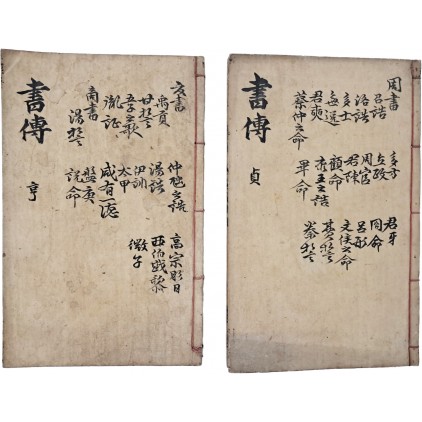 書傳
亨
夏書
禹貢
甘誓
五子之歌
胤征
商書
湯誓
仲虺之誥
湯誥
伊訓
太甲
咸有一德
盤庚
說命
高宗肜日
西伯戡黎
微子
書傳
貞
周書
召誥
洛誥
多士
無逸
君奭
蔡仲之命
多方
立政
周官
君陳
顧命
康王之誥
畢命
君牙
冏命
呂刑
文侯之命
費誓
秦誓